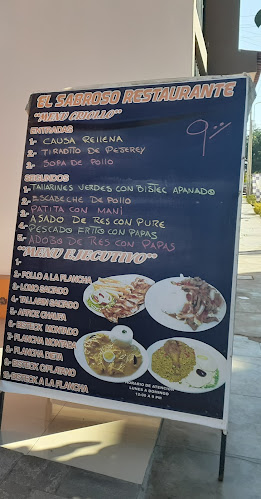 EL SABROSO RESTAURANTE
"MENU CRIOLLO"
9.00
ENTRADAS
1.- CAUSA RELLENA
2.- TIRADITO DE PEJEREY
3.- SOPA DE POLLO
SEGUNDOS
1.- TALLARINES VERDES CON BISTEC APANADO
2.- ESCABECHE DE POLLO
3.- PATITA CON MANI
4.- ASADO DE RES CON PURE
4.- PESCADO FRITO CON PAPAS
5.- ADOBO DE RES CON PAPAS
"MENU EJECUTIVO"
1-
2-
3- POLLO A LA PLANCHA
4- LOMO SALTADO
5- TALLARIN SALTADO
6- ARROZ CHAUFA
7- BISTECK MONTADO
8- PLANCHA MONTADA
9- PLANCHA DIETA
BISTECK C/PLATANO
BISTECK A LA PLANCHA
HORARIO DE ATENCION
LUNES A DOMINGO
12:00 A 5 PM